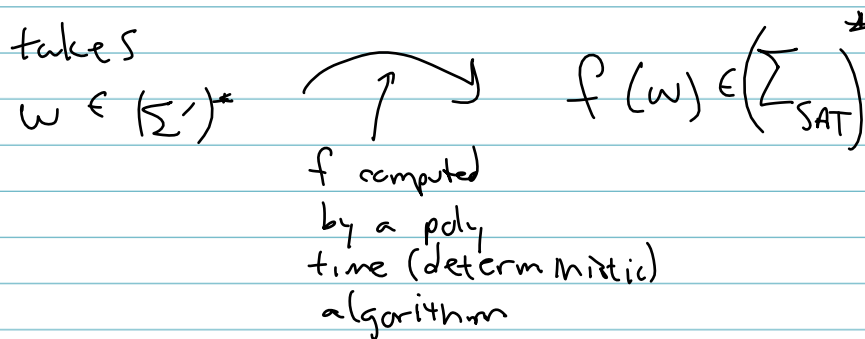 takes
w ∈ (Σ')* f(w) ∈ (Σ_SAT)*
f computed
by a poly
time (deterministic)
algorithm